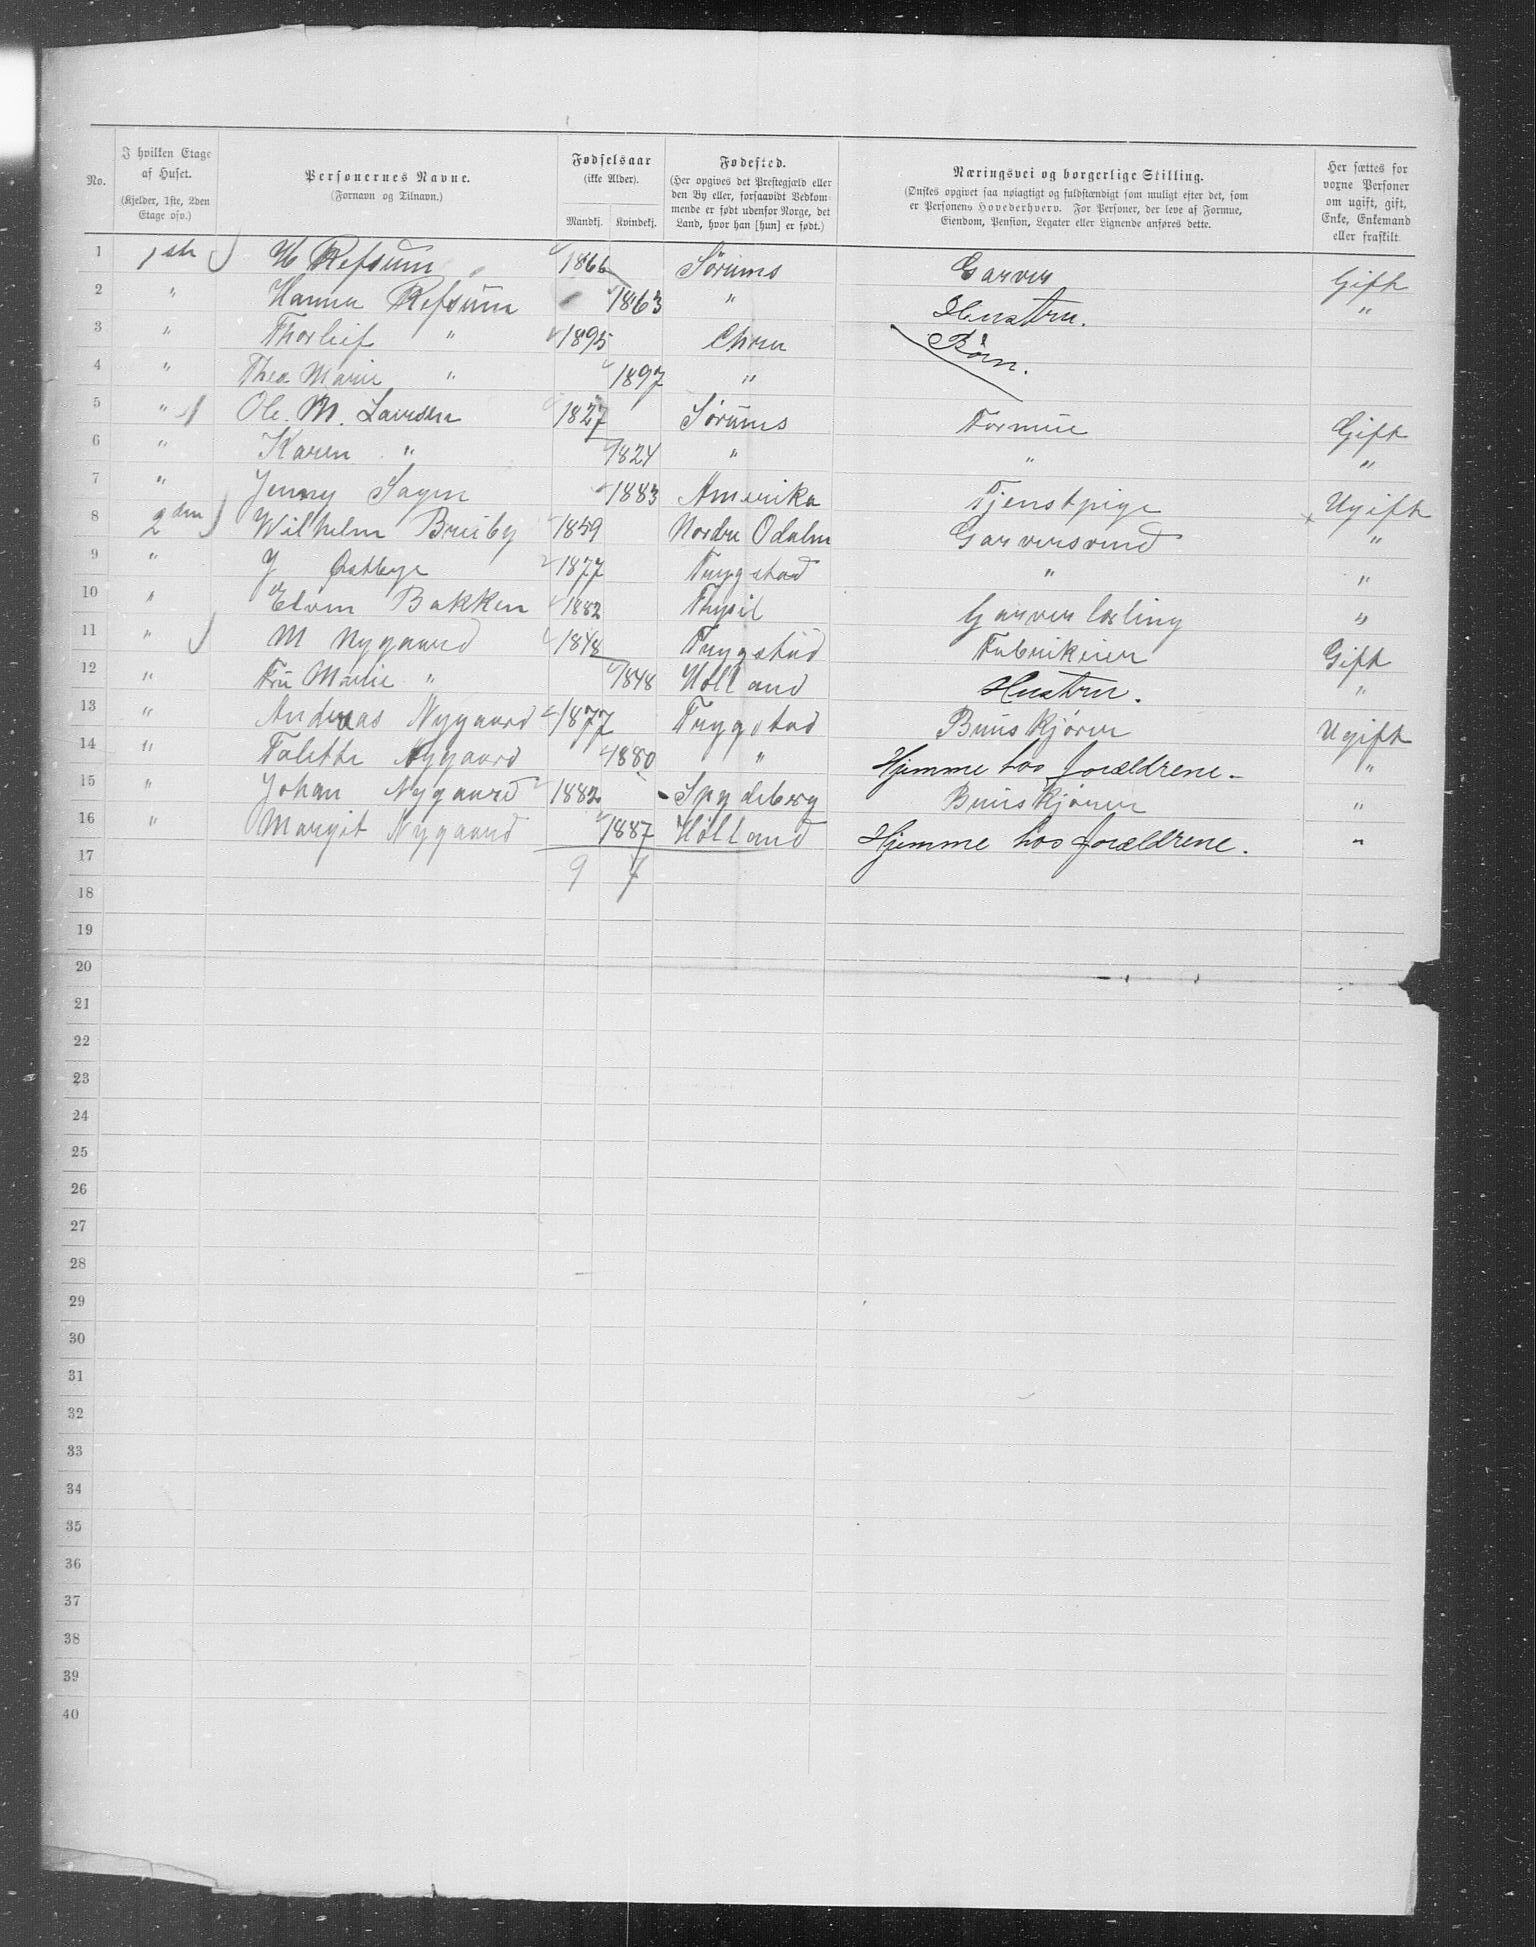 No. | I hvilken Etage af Huset. (Kjelder, 1ste, 2den Etage osv.) | Personernes Navne. (Fornavn og Tilnavn.) | Fødselsaar (ikke Alder). Mandkj. Kvindekj. | Fødested. (Her opgives det Prestegjæld eller den By eller, forsaavidt Vedkommende er født udenfor Norge, det Land, hvor han [hun] er født.) | Næringsvei og borgerlige Stilling. (Ønskes opgivet saa nøiagtigt og fuldstændigt som muligt efter det, som er Personens Hovederhverv. For Personer, der leve af Formue, Eiendom, Pension, Legater eller Lignende anføres dette. | Her sættes for voxne Personer om ugift, gift, Enke, Enkemand eller fraskilt
1 1ste H Refsum 1866 Sørums Garver Gift
2 " Hanna Refsum 1863 " Hustru. "
3 " Thorleif " 1895 Chrm Børn.
4 " Thea Marie " 1897 "
5 " Ole M. Larsen 1827 Sørums Formue Gift
6 " Karen " 1824 " " "
7 " Jenny Sagen 1883 Amerika Tjenstpige Ugift
8 2den Wilhelm Bruby 1859 Nordre Odalen Garversvend "
9 " J Østbye 1877 Trygstad " "
10 " Elvin Bakken 1882 Thrysil Garverlærling "
11 " M Nygaard 1848 Trygstad Fabrikeier Gift
12 " Fru Marie " 1848 Høland Hustru. "
13 " Andreas Nygaard 1877 Trygstad Buuskjører Ugift
14 " Talette Nygaard 1880 " Hjemme hos forældrene. "
15 " Johan Nygaard 1882 Spydeberg Buuskjører "
16 " Margit Nygaard 1887 Høland Hjemme hos forældrene. "
17 9 7
18
19
20
21
22
23
24
25
26
27
28
29
30
31
32
33
34
35
36
37
38
39
40